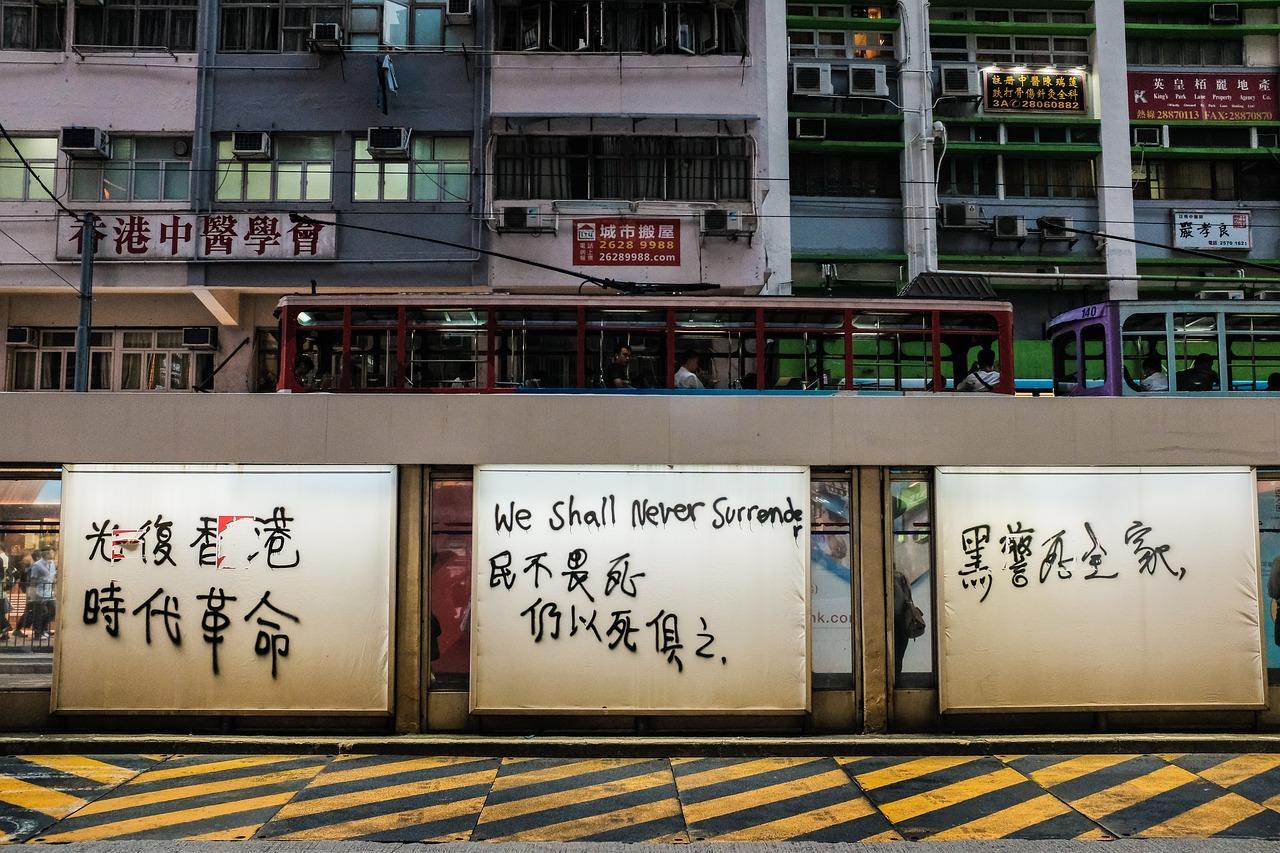 註冊中醫陳瑞蓮
跌打骨傷針灸全科
3A✆28060882
英皇栢麗地產
King's Park Lane Property Agency Co.
熱線 28870113 FAX:28870870
香港中醫學會
城市搬屋
電話 2628 9988
網址 26289988.com
嚴孝良
電話 2570 1621
140
光復香港
時代革命
We Shall Never Surrender
民不畏死
仍以死俱之.
黑警死全家,
nk.co